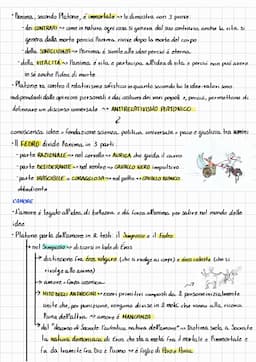 · L'anima, secondo Platone, è immortale → lo dimostra con 3 prove:
· dei CONTRARI → come in natura ogni cosa si genera dal suo contrario, anche la vita si
genera dalla morte perciò l'anima rivive dopo la morte del corpo
· della SOMIGLIANZA → l'anima è simile alle idee perciò è eterna
· della VITALITÀ → l'anima è vita e partecipa all'idea di vita e perciò non può avere
in sé anche l'idea di morte
· Platone va contro il relativismo sofistico in quanto secondo lui le idee-valori sono
indipendenti dalle opinioni personali e dai costumi dei vari popoli e, perciò, permettono di
delineare un discorso universale → ANTIRELATIVISMO PLATONICO
conoscenza idee = fondazione scienza politica universale = pace e giustizia tra uomini
· Il FEDRO divide l'anima in 3 parti:
· parte RAZIONALE → nel cervello → AURIGA che guida il carro
· parte DESIDERANTE → nel ventre → CAVALLO NERO impetuoso
· parte IRASCIBILE o CORAGGIOSA → nel petto → CAVALLO BIANCO
obbediente
L'AMORE
· L'amore è legato all'idea di bellezza e dà forza all'anima per salire nel mondo delle
idee
· Platone parla dell'amore in 2 testi: il Simposio e il Fedro
→ nel Simposio → discorsi in lode di Eros
→ distinzione fra eros volgare (che si rivolge ai corpi) e eros celeste (che si
rivolge alle anime)
→ amore = forza cosmica
→ MITO DEGLI ANDROGINI → esseri primitivi composti da 2 persone inizialmente
unite che, per punizione, vengono divise in 2 metà che vanno alla ricerca
l'una dell'altra → amore è MANCANZA
→ dal "discorso di Socrate l'autentica natura dell'amore" → Diotima svela a Socrate
la natura demoniaca di Eros che sta a metà fra il mortale e l'immortale e
fa da tramite tra Dio e l'uomo → è figlio di Poros e Penia